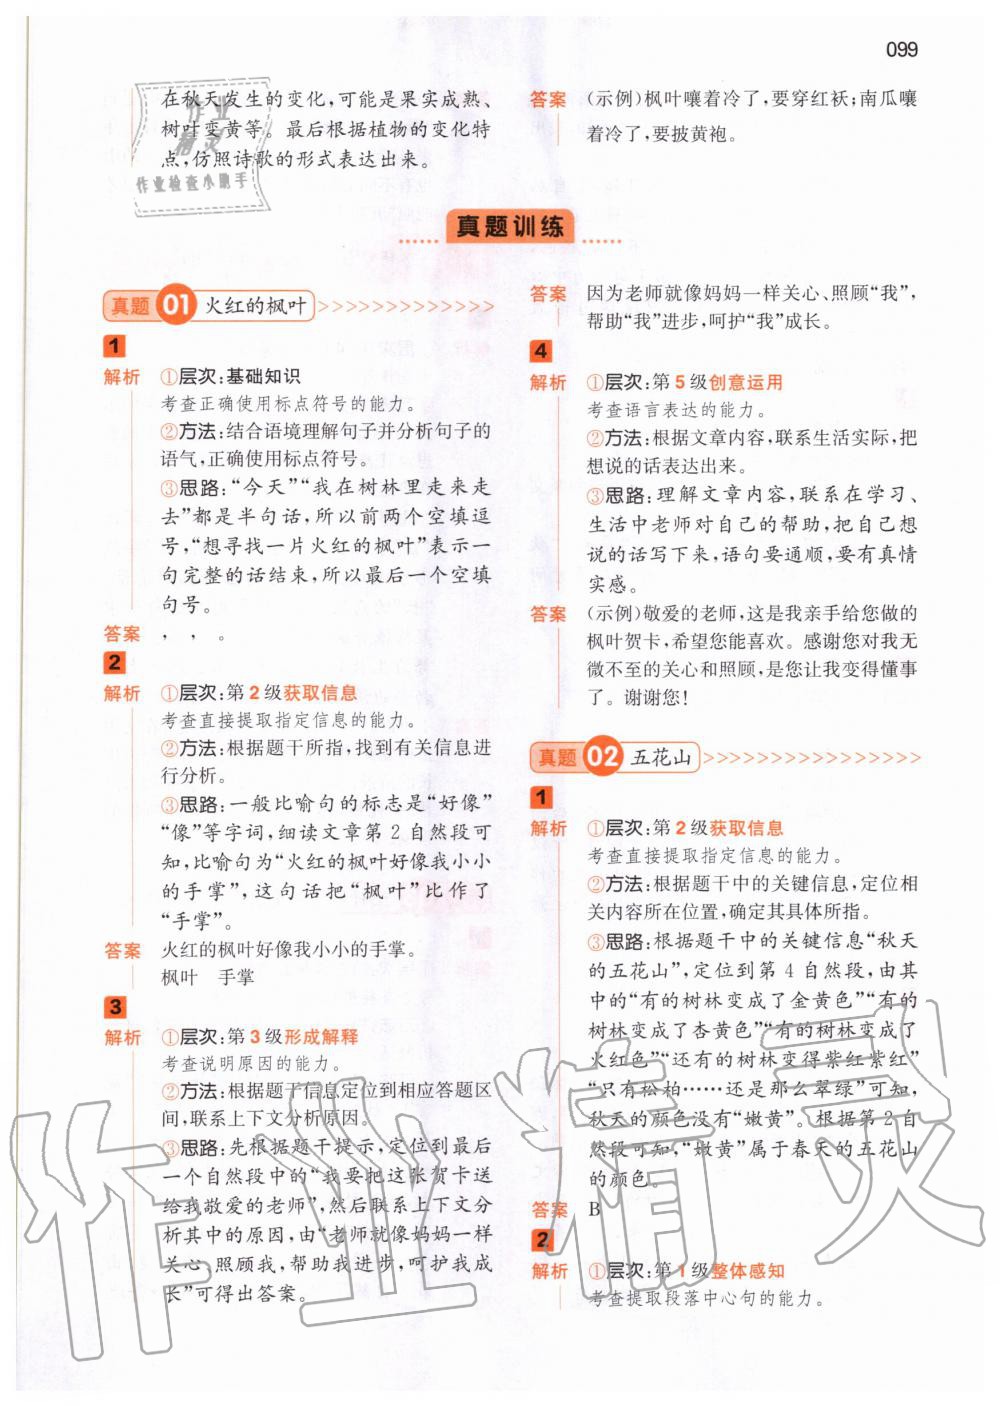 099
在秋天发生的变化,可能是果实成熟、
树叶变黄等。最后根据植物的变化特
点,仿照诗歌的形式表达出来。
答案 (示例)枫叶嚷着冷了,要穿红袄;南瓜嚷
着冷了,要披黄袍。
作业
精灵
作业检查小助手
真题训练
真题 01 火红的枫叶
1
解析 ①层次:基础知识
考查正确使用标点符号的能力。
②方法:结合语境理解句子并分析句子的
语气,正确使用标点符号。
③思路:“今天”“我在树林里走来走
去”都是半句话,所以前两个空填逗
号,“想寻找一片火红的枫叶”表示一
句完整的话结束,所以最后一个空填
句号。
答案 , , 。
2
解析 ①层次:第2级获取信息
考查直接提取指定信息的能力。
②方法:根据题干所指,找到有关信息进
行分析。
③思路:一般比喻句的标志是“好像”
“像”等字词,细读文章第2自然段可
知,比喻句为“火红的枫叶好像我小小
的手掌”,这句话把“枫叶”比作了
“手掌”。
答案 火红的枫叶好像我小小的手掌。
枫叶 手掌
3
解析 ①层次:第3级形成解释
考查说明原因的能力。
②方法:根据题干信息定位到相应答题区
间,联系上下文分析原因。
③思路:先根据题干提示,定位到最后
一个自然段中的“我要把这张贺卡送
给我敬爱的老师”,然后联系上下文分
析其中的原因,由“老师就像妈妈一样
关心、照顾我,帮助我进步,呵护我成
长”可得出答案。
答案 因为老师就像妈妈一样关心、照顾“我”,
帮助“我”进步,呵护“我”成长。
4
解析 ①层次:第5级创意运用
考查语言表达的能力。
②方法:根据文章内容,联系生活实际,把
想说的话表达出来。
③思路:理解文章内容,联系在学习、
生活中老师对自己的帮助,把自己想
说的话写下来,语句要通顺,要有真情
实感。
答案 (示例)敬爱的老师,这是我亲手给您做的
枫叶贺卡,希望您能喜欢。感谢您对我无
微不至的关心和照顾,是您让我变得懂事
了。谢谢您!
真题 02 五花山
1
解析 ①层次:第2级获取信息
考查直接提取指定信息的能力。
②方法:根据题干中的关键信息,定位相
关内容所在位置,确定其具体所指。
③思路:根据题干中的关键信息“秋天
的五花山”,定位到第4自然段,由其
中的“有的树林变成了金黄色”“有的
树林变成了杏黄色”“有的树林变成了
火红色”“还有的树林变得紫红紫红”
“只有松柏……还是那么翠绿”可知,
秋天的颜色没有“嫩黄”。根据第2自
然段可知,“嫩黄”属于春天的五花山
的颜色。
答案 B
2
解析 ①层次:第1级整体感知
考查提取段落中心句的能力。
作业精灵